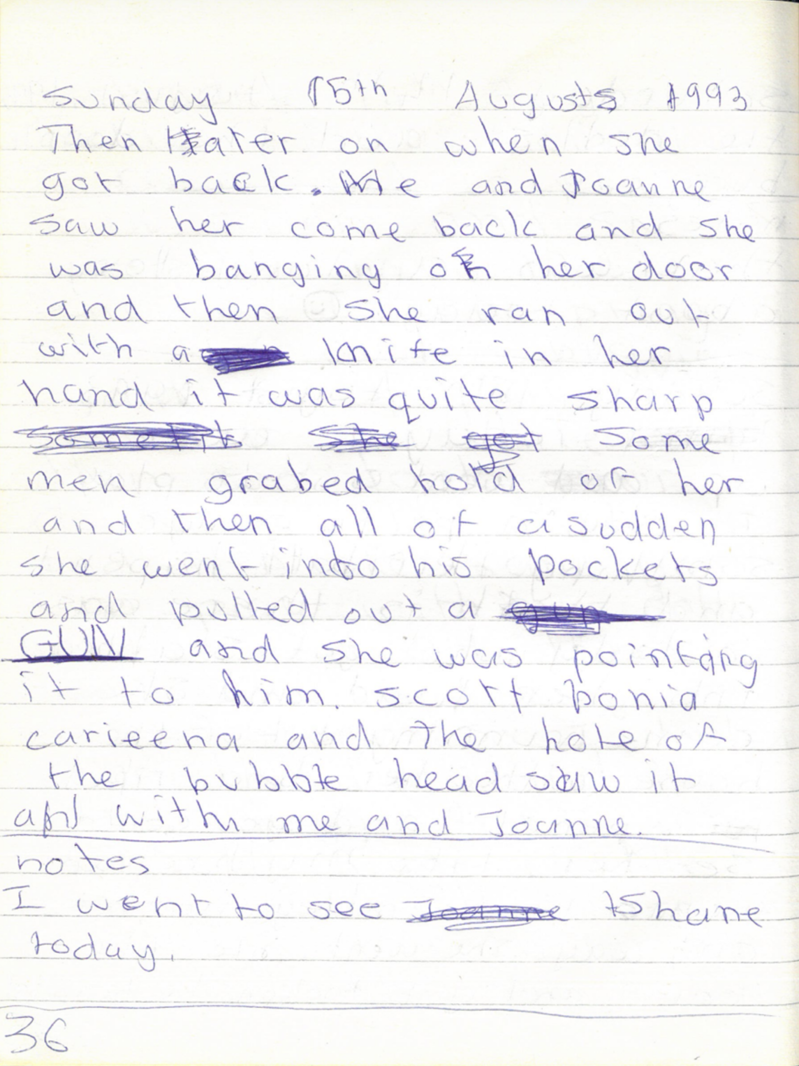 Sunday 15th Augusts 1993
Then later on when she
got back. Me and Joanne
saw her come back and she
was banging on her door
and then she ran out
with a knife in her
hand it was quite sharp
some
men grabed hold of her
and then all of a sudden
she went into his pockets
and pulled out a
GUN and she was pointing
it to him. scott bonia
carieena and the hole of
the bubble head saw it
with me and Joanne.
notes
I went to see Shane
today.
36